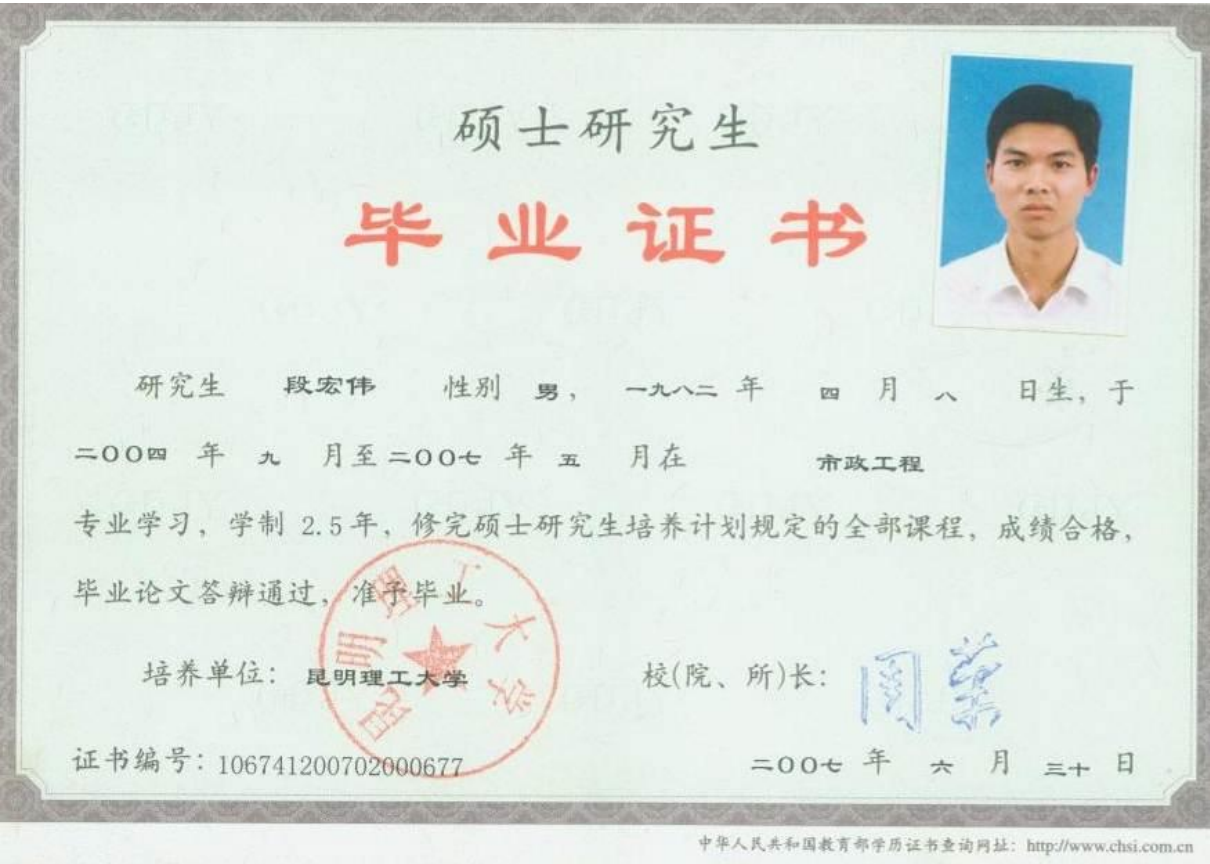 硕士研究生
毕业证书
研究生 段宏伟 性别 男, 一九八二 年 四 月 八 日生, 于
二〇〇四 年 九 月至 二〇〇七 年 五 月在 市政工程
专业学习, 学制 2.5年, 修完硕士研究生培养计划规定的全部课程, 成绩合格,
毕业论文答辩通过, 准予毕业。
昆明理工大学
培养单位: 昆明理工大学 校(院、所)长: 周荣
证书编号: 106741200702000677 二〇〇七 年 六 月 三十 日
中华人民共和国教育部学历证书查询网址: http://www.chsi.com.cn